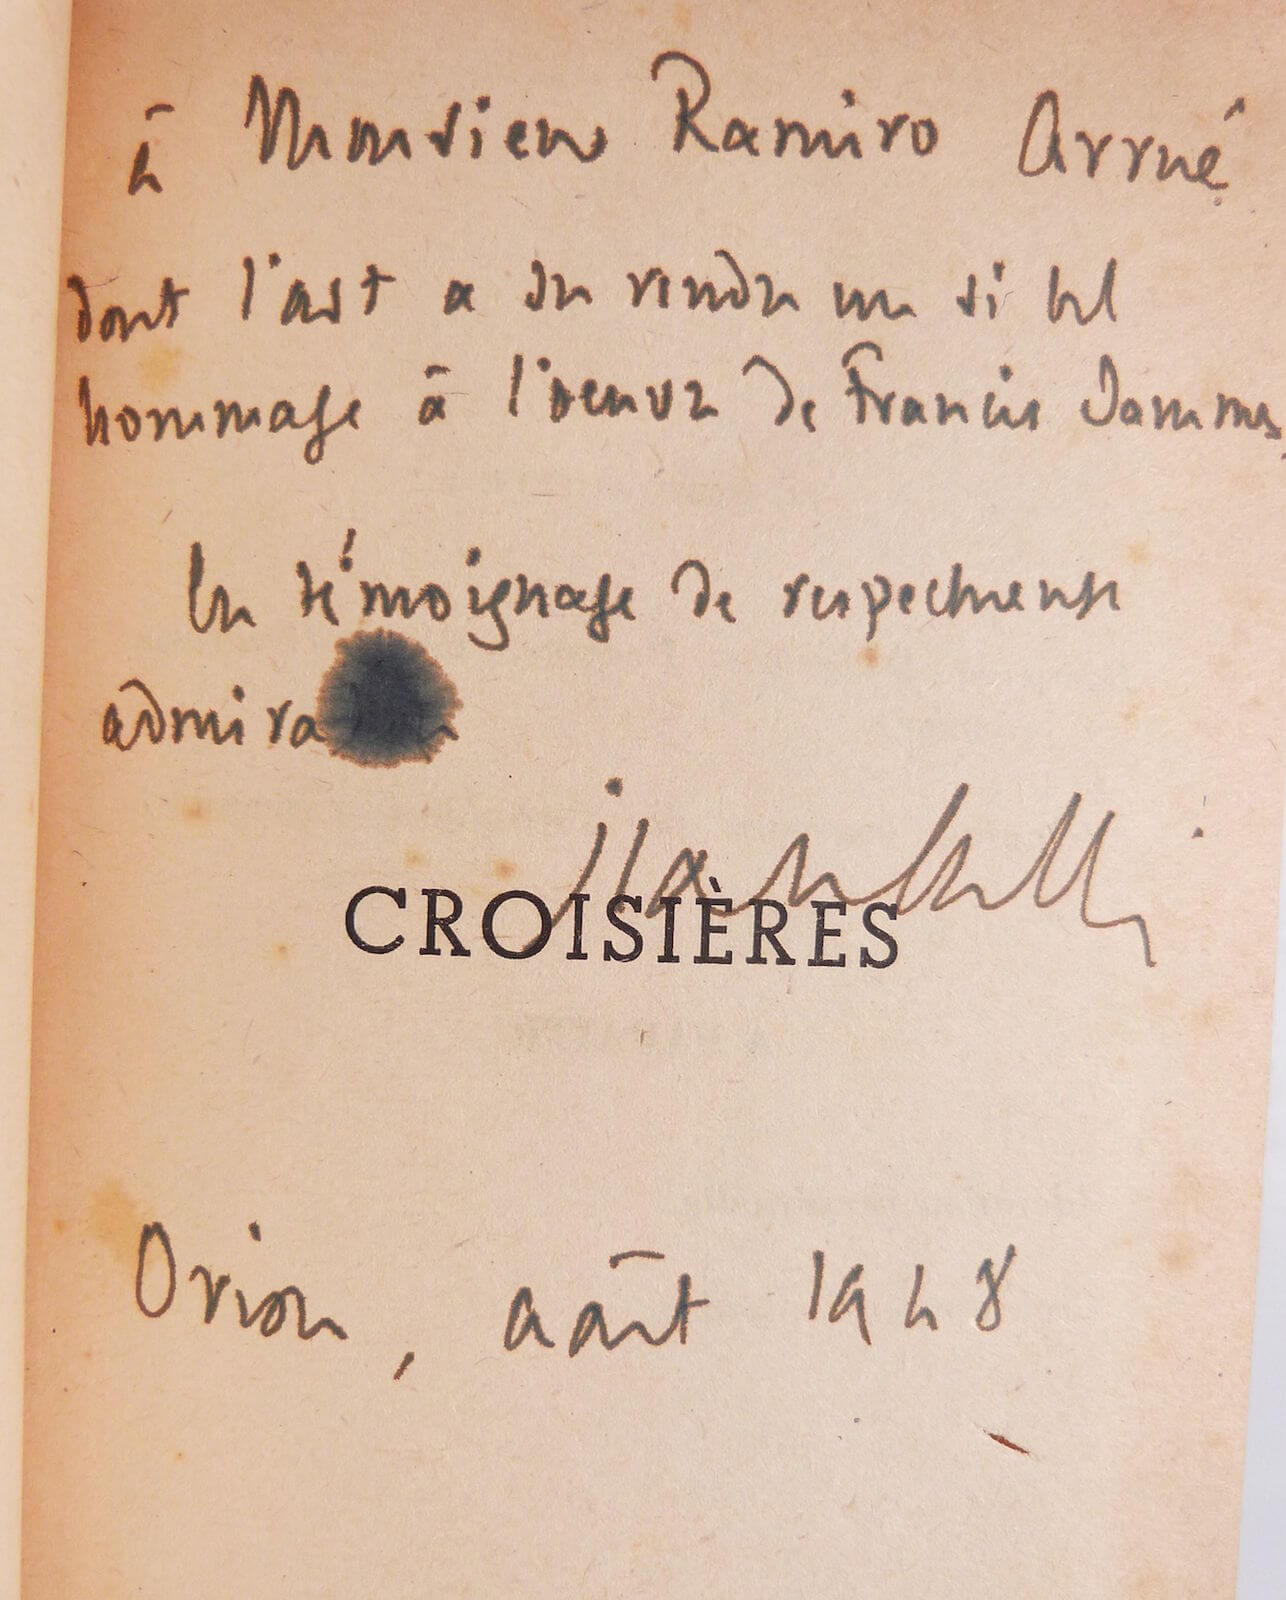 à Monsieur Ramiro Arrué
dont l'art a su rendre un si bel
hommage à l'oeuvre de Francis Jammes,
En témoignage de respectueuse
admira
CROISIÈRES
Orion, août 1948